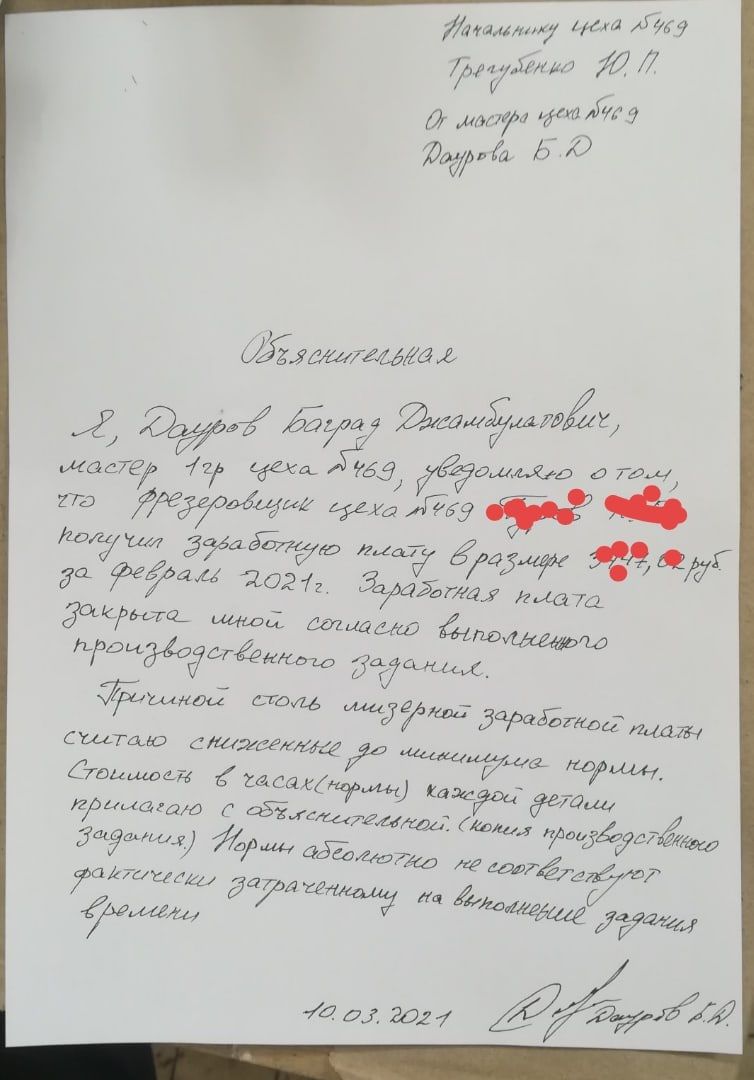 Начальнику цеха №469
Трегубенко Ю.П.
От мастера цеха №469
Даурова Б.Д
Объяснительная
Я, Дауров Баград Джамбулатович,
мастер 1гр цеха №469, уведомляю о том,
что фрезеровщик цеха №469
получил заработную плату в размере руб.
за февраль 2021г. Заработная плата
закрыта мной согласно выполненного
производственного задания.
Причиной столь мизерной заработной платы
считаю сниженные до минимума нормы.
Стоимость в часах(нормы) каждой детали
прилагаю с объяснительной. (копия производственного
задания.) Нормы абсолютно не соответствуют
фактически затраченному на выполнение задания
времени
10.03.2021 Дауров Б.Д.